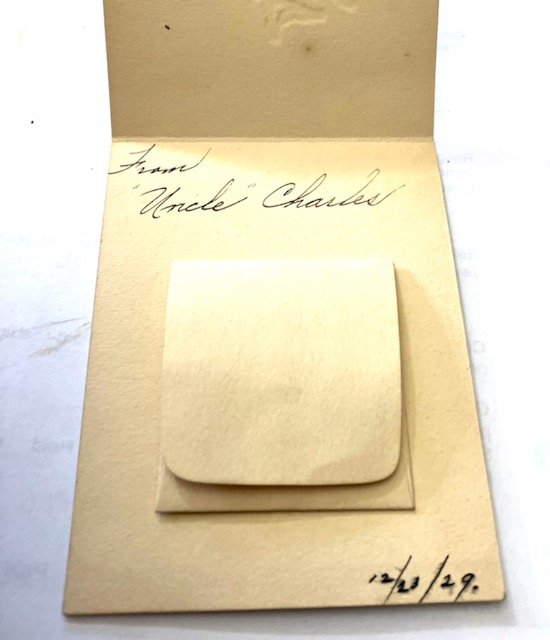 From
"Uncle" Charles
12/23/29.